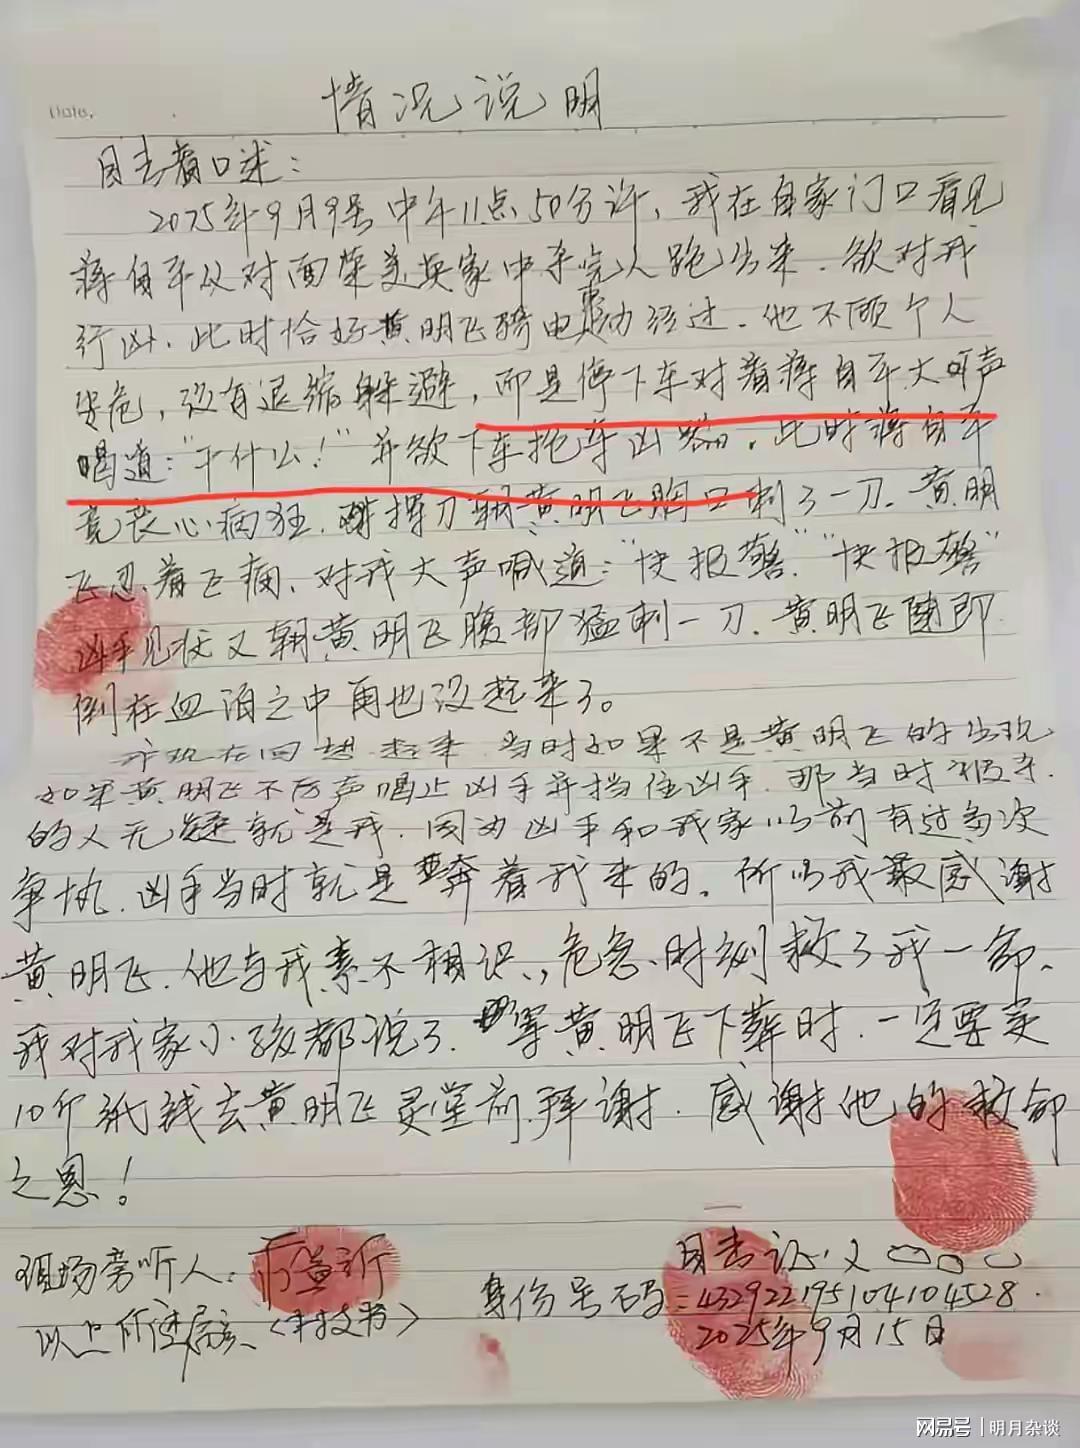 Date.
情况说明
目击者口述：
2025年9月9号中午11点50分许，我在自家门口看见
蒋自平从对面荣美英家中杀完人跑出来．欲对我
行凶．此时恰好黄明飞骑电动车经过．他不顾个人
安危，没有退缩躲避，而是停下车对着蒋自平大吼声
喝道："干什么！"并欲下车拖夺凶器．此时蒋自平
竟丧心病狂．挥刀朝黄明飞胸口刺了一刀．黄明
飞忍着飞痛．对我大声喊道："快报警""快报警"
凶手见状又朝黄明飞腹部猛刺一刀．黄明飞随即
倒在血泊之中再也没起来了。
我现在回想起来．当时如果不是黄明飞的出现
如果黄明飞不厉声喝止凶手并挡住凶手．那当时被杀
的人无疑就是我．因为凶手和我家以前有过多次
争执．凶手当时就是奔着我来的。所以我最感谢
黄明飞．他与我素不相识，危急时刻救了我一命．
我对我家小孩都说了．等黄明飞下葬时．一定要买
10斤纸钱去黄明飞灵堂前拜谢．感谢他的救命
之恩！
现场旁听人：
以上所述属实（村支书）
目击证人
身份号码：432922195104104528.
2025年9月15日
网易号 | 明月杂谈